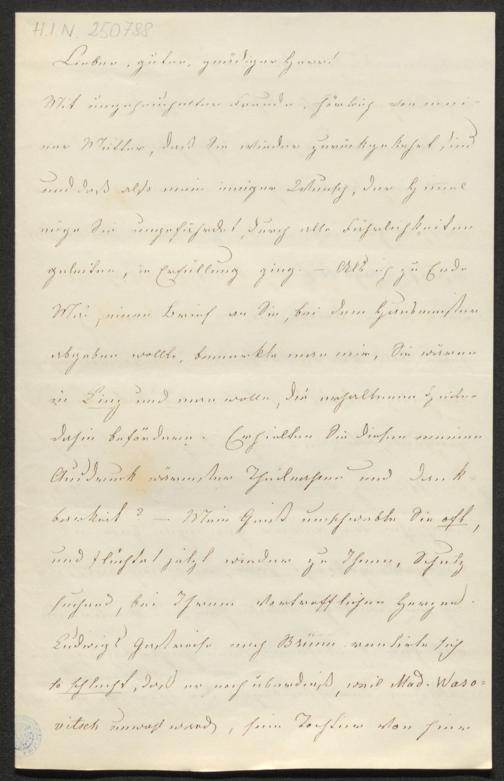 H.I.N. 250788
Lieber, guter, gnädiger Herr!
Mit ungeheuchelter Freude, hörte ich von mei-
ner Mutter, daß Sie wieder zurückgekehrt sind
und daß also mein inniger Wunsch, der Himmel
möge Sie ungefährdet durch alle Fährlichkeiten
geleiten, in Erfüllung ging. – Als ich zu Ende
Mai, einen Brief an Sie, bei dem Hausmeister
abgeben wollte, bemerkte man mir, Sie wären
in Linz und man wolle, die erhaltenen
dahin befördern. Erhielten Sie diesen meinen
Ausdruck wärmster Theilnahme und Dank-
barkeit? – Mein Geist umschwebte Sie oft,
und flüchtet jetzt wieder zu Ihnen, Schutz
suchend, bei Ihrem vortrefflichen Herzen.
Ludwigs Gastreise nach Brünn rentierte sich
so schlecht, daß er noch überdieß, weil Mad. Waso-
vitsch unwohl ward, sein Töchter von hier